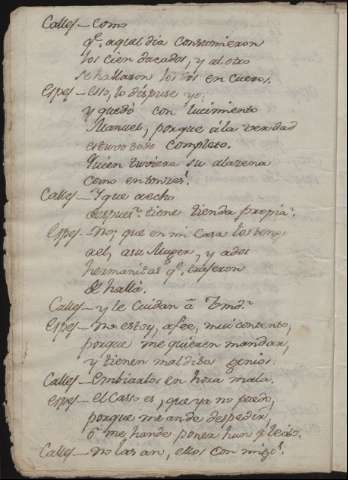 Calles- Como
q.e aquel dia consumieron
los cien ducados, y al otro
se hallaron los dos en cueros.
Espej- Eso, lo dispuse yo;
y quedó con lucimiento
Manuel, porque a la verdad
estuvo todo completo.
Quien tuviera su alazena
como entonzes!
Calles- Y que a echo
despues? tiene tienda propia?
Espej- No; que en mi Casa los teng
a el, a su Muger, y a dos
hermanitas q.e trageron
de halla.
Calles- y le Cuidan à Vmd?
Espej- no estoy, a fee, mui contento,
porque me quieren mandar,
y tienen malditos genios.
Calles- Embiarlos en hora mala.
Espej- el Caso es, que ya no puedo,
porque me an de despedir,
ó me han de poner hun pleito.
Calles- no las an, ellos con